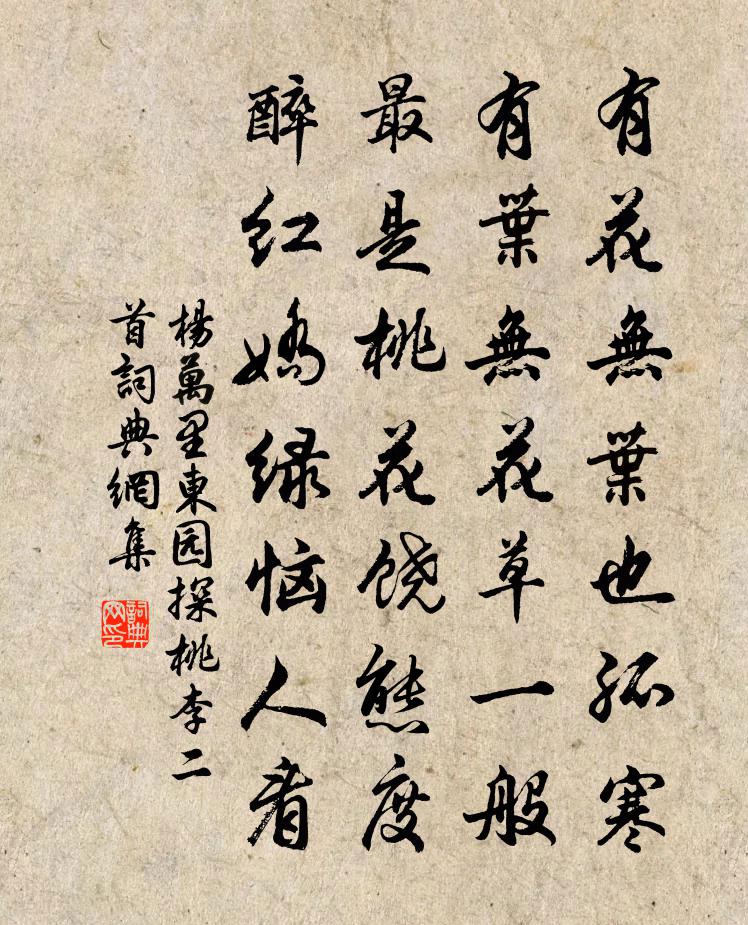 有花無葉也孤寒
有葉無花草一般
最是桃花饶態度
醉红嬌绿恼人看
楊萬里東园探桃李二
首詞典網集
詞典
网印